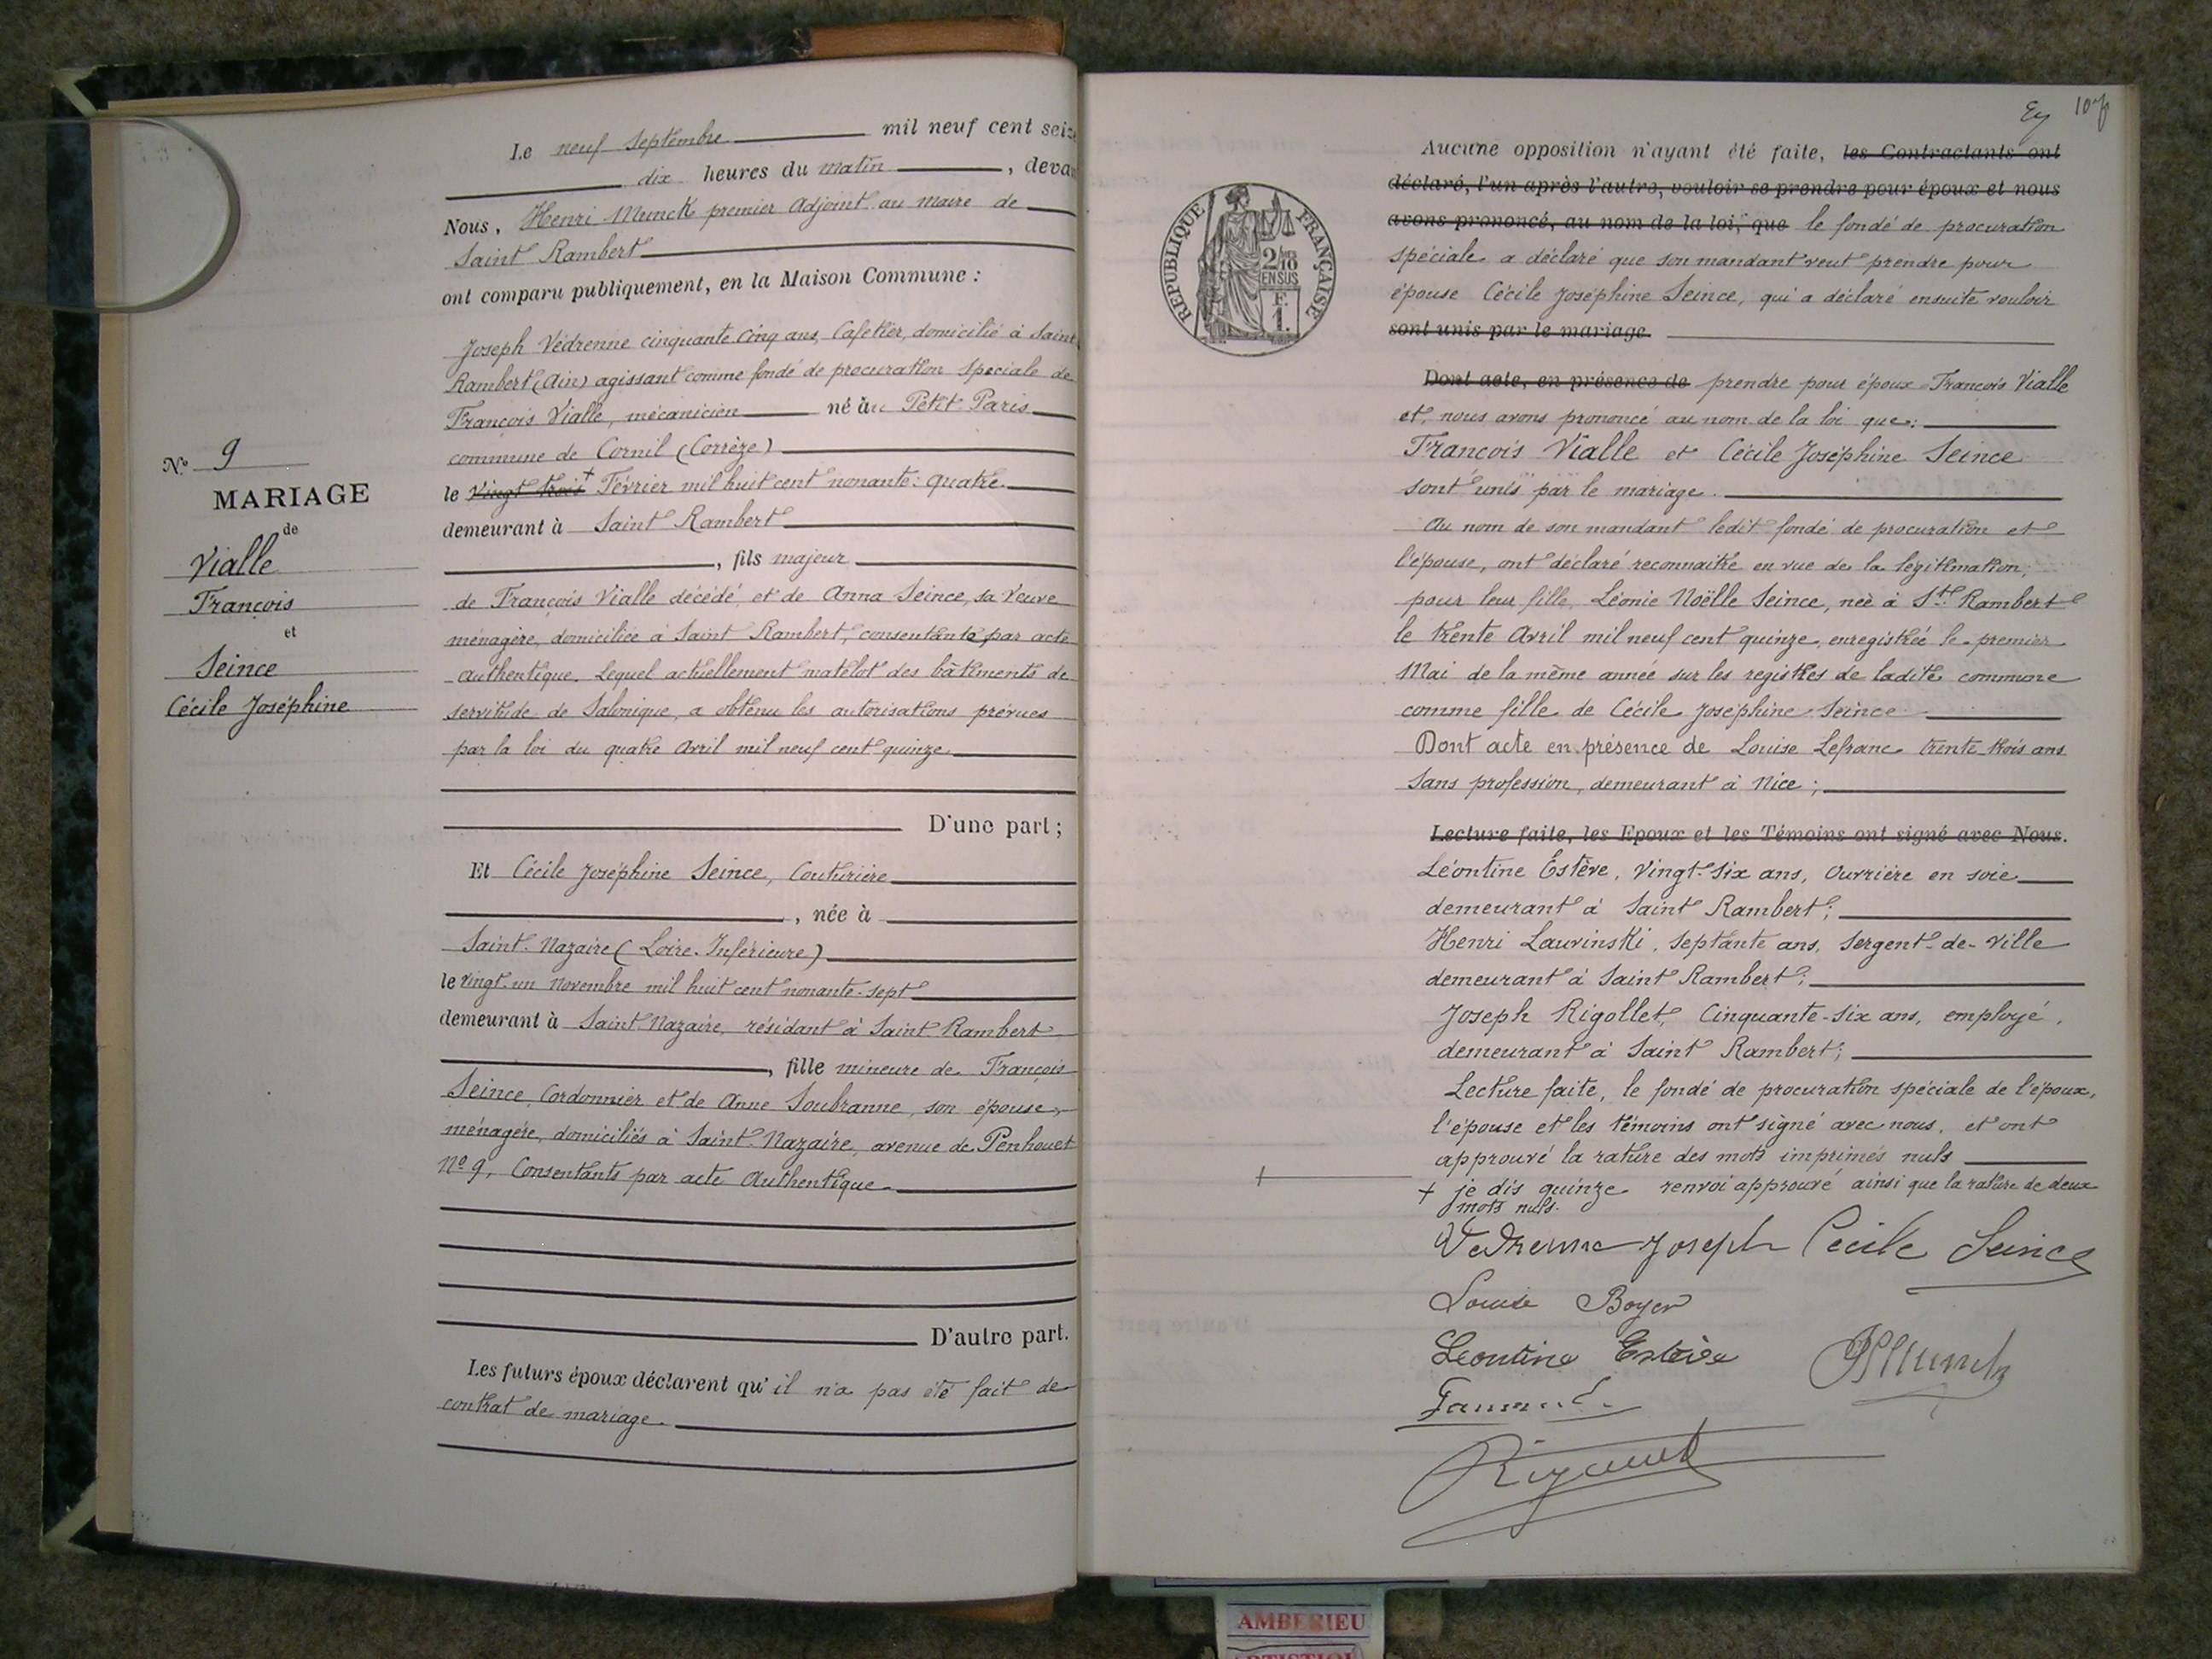 Le neuf Septembre mil neuf cent seize
dix heures du matin, devan
Nous, Henri Munck premier adjoint au maire de
Saint Rambert
ont comparu publiquement, en la Maison Commune :
Joseph Védrenne cinquante cinq ans, Cafetier, domicilié à Saint
Rambert (Ain) agissant comme fondé de procuration Spéciale de
François Vialle, mécanicien né au Petit Paris
commune de Cornil (Corrèze)
le Vingt trois + Février mil huit cent nonante-quatre
demeurant à Saint Rambert
, fils majeur
de François Vialle décédé, et de Anna Seince, sa Veuve
ménagère, domiciliée à Saint Rambert, consentante par acte
authentique. Lequel actuellement matelot des bâtiments de
servitude de Salonique, a obtenu les autorisations prévues
par la loi du quatre Avril mil neuf cent quinze
D'une part ;
Et Cécile Joséphine Seince, Couturière
, née à
Saint-Nazaire (Loire-Inférieure)
le vingt-un Novembre mil huit cent nonante-sept
demeurant à Saint-Nazaire, résidant à Saint Rambert
, fille mineure de François
Seince Cordonnier et de Anne Soubranne, son épouse,
ménagère, domiciliés à Saint-Nazaire, avenue de Penhouet
No 9, Consentants par acte Authentique
D'autre part.
Les futurs époux déclarent qu'il n'a pas été fait de
contrat de mariage.
No 9
MARIAGE
de
Vialle
François
et
Seince
Cécile Joséphine
Aucune opposition n'ayant été faite, les Contractants ont
déclaré, l'un après l'autre, vouloir se prendre pour époux et nous
avons prononcé, au nom de la loi, que le fondé de procuration
spéciale a déclaré que son mandant veut prendre pour
épouse Cécile Joséphine Seince, qui a déclaré ensuite vouloir
sont unis par le mariage.
Dont acte, en présence de prendre pour époux François Vialle
et nous avons prononcé au nom de la loi que :
François Vialle et Cécile Joséphine Seince
sont unis par le mariage.
Au nom de son mandant ledit fondé de procuration et
l'épouse, ont déclaré reconnaitre en vue de la légitimation,
pour leur fille, Léonie Noëlle Seince, née à St Rambert
le trente Avril mil neuf cent quinze, enregistrée le premier
Mai de la même année sur les registres de ladite commune
comme fille de Cécile Joséphine Seince
Dont acte en présence de Louise Lefranc trente-trois ans
Sans profession, demeurant à Nice ;
Lecture faite, les Epoux et les Témoins ont signé avec Nous.
Léontine Estève, Vingt-six ans, Ouvrière en soie
demeurant à Saint Rambert ;
Henri Lauvinski, septante ans, Sergent-de-Ville
demeurant à Saint Rambert ;
Joseph Rigollet, Cinquante-six ans, employé,
demeurant à Saint Rambert ;
Lecture faite, le fondé de procuration spéciale de l'époux,
l'épouse et les témoins ont signé avec nous, et ont
approuvé la rature des mots imprimés nuls
+ je dis quinze renvoi approuvé ainsi que la rature de deux
mots nuls.
Vedrenne Joseph Cécile Seince
Louise Boyer
Léontine Estève
REPUBLIQUE FRANÇAISE
2/10
EN SUS
F.
1.
AMBERIEU